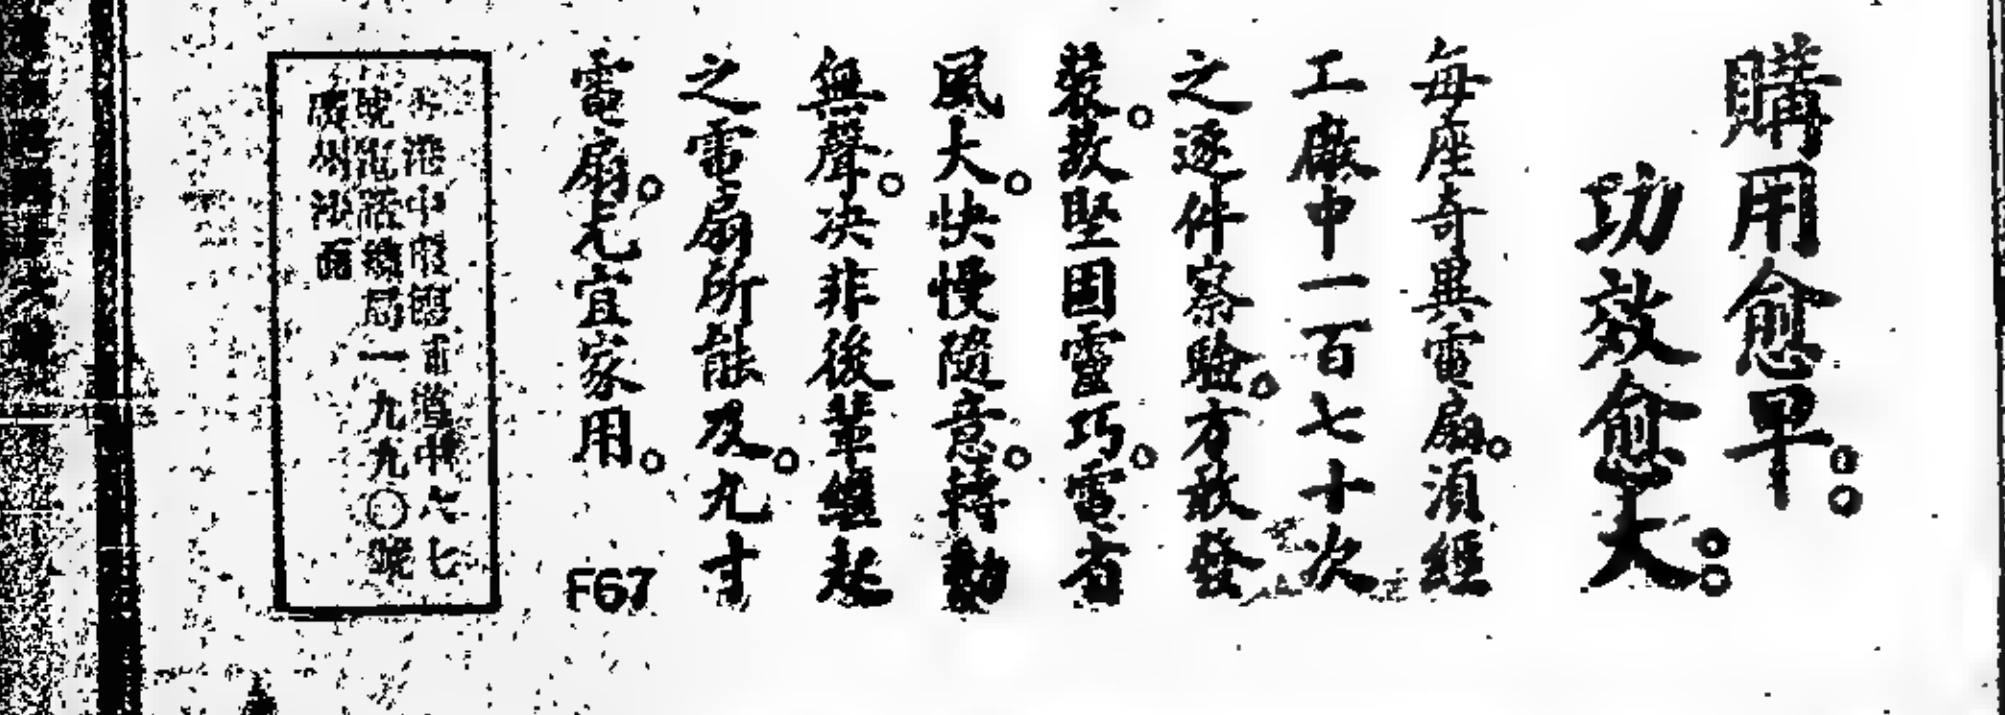 購用愈早。。
功效愈大。。
每座奇異電扇。須經
工廠中一百七十次
之逐件察驗。方敢發
裝。故堅固靈巧。電省
風大。快慢隨意。轉動
無聲。决非後輩繼起
之電扇所能及。九寸
電扇。尤宜家用。
F67
港中環遮打道中六七
號電話總局一九九〇號
廣州沙面